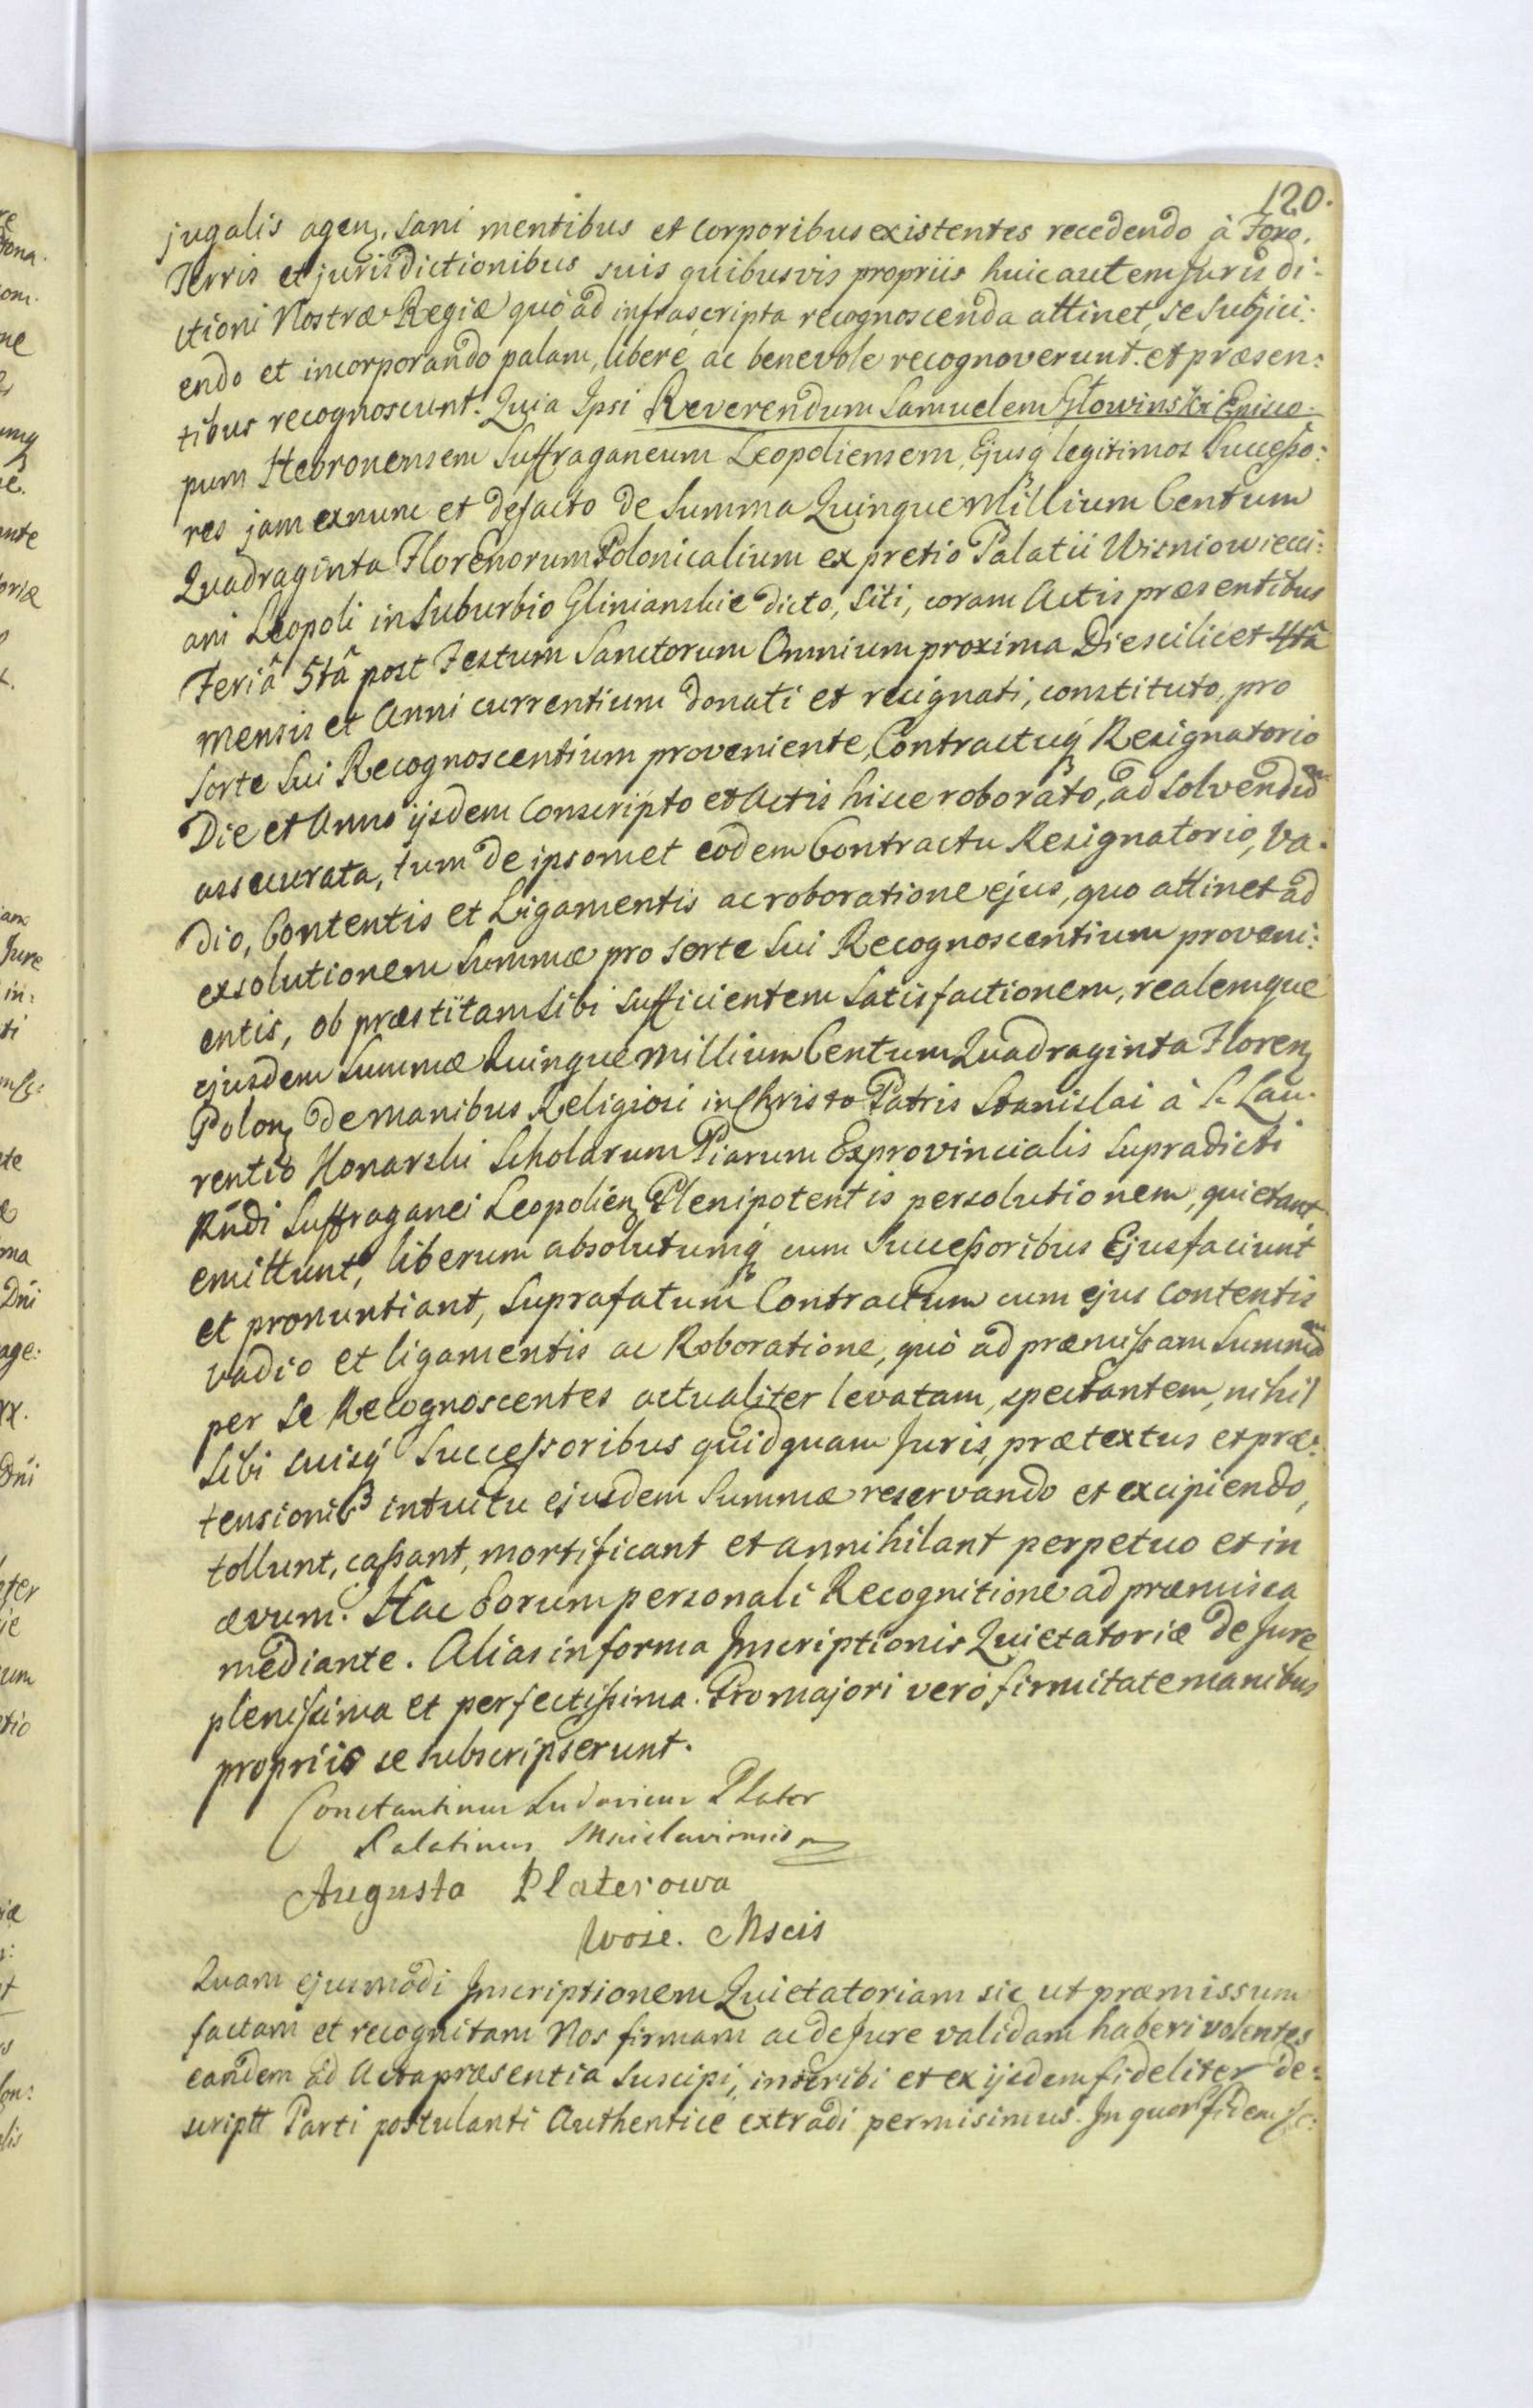 120.
jugalis agen, sani mentibus et corporibus existentes recedendo à Foro,
Terris et jurisdictionibus suis quibusvis propriis huic autem Jurisdi:
ctioni Nostræ Regiæ quò ad infrascripta recognoscenda attinet, se subjici:
endo et incorporando palam, liberè ac benevole recognoverunt. et præsen:
tibus recognoscunt. Quia Ipsi Reverendum Samuelem Głowinski Episco-
pum Hebronensem Suffraganeum Leopoliensem, Ejusq̃ legitimos Successo:
res jam exnunc et defacto de Summa Quinque Millium Centum
Quadraginta Florenorum Polonicalium ex pretio Palatii Wisniowieci:
ani Leopoli in Suburbio Glinianskie dicto, siti, coram Actis præsentibus
Feriâ 5tâ post Festum Sanctorum Omnium proxima Die scilicet 4tâ
mensis et Anni currentium donati et resignati, constituto, pro
sorte sui Recognoscentium proveniente, Contractuq̃ Resignatorio
Die et Anno ijsdem Conscripto et Actis hisce roborato, ad solvendũ
assecurata, tum de ipsomet eodem Contractu Resignatorio, Va-
dio, Contentis et Ligamentis ac roboratione ejus, quo attinet ad
exsolutionem Summæ pro sorte sui Recognoscentium proveni:
entis, ob præstitam sibi sufficientem satisfactionem, realemque
ejusdem Summæ Quinque Millium Centum Quadraginta Floren
Polon de manibus Religiosi in Christo Patris Stanislai à S. Lau-
rentio Konarski Scholarum Piarum Exprovincialis supradicti
Rñdi Suffraganei Leopolien Plenipotentis persolutionem, quietant
emittunt, liberum absolutumq̃ cum Successoribus Ejus faciunt
et pronuntiant, Suprafatum Contractum cum ejus contentis
vadio et ligamentis ac Roboratione, quò ad præmissam Summã
per se Recognoscentes actualiter levatam, spectantem, nihil
Sibi suisq̃ Successoribus quidquam Juris, prætextus et præ:
tensionis intuitu ejusdem Summæ reservando et excipiendo,
tollunt, cassant, mortificant et annihilant perpetuo et in
ævum. Hac Eorum personali Recognitione ad præmissa
mediante. Alias in forma Inscriptionis Quietatoriæ de Jure
plenissima et perfectissima. Pro majori verò firmitate manibus
propriis se subscripserunt.
Constantinus Ludovicus Plater
Palatinus Mscislaviensis
Augusta Platerowa
Woie. Mscis
Quam ejusmodi Inscriptionem Quietatoriam sic ut præmissum
factam et recognitam Nos firmam ac de Jure validam haberi volentes
eandem ad Acta præsentia suscipi, inscribi et ex ijsdem fideliter de:
scriptt Parti postulanti Authentice extradi permisimus. In quor fidem